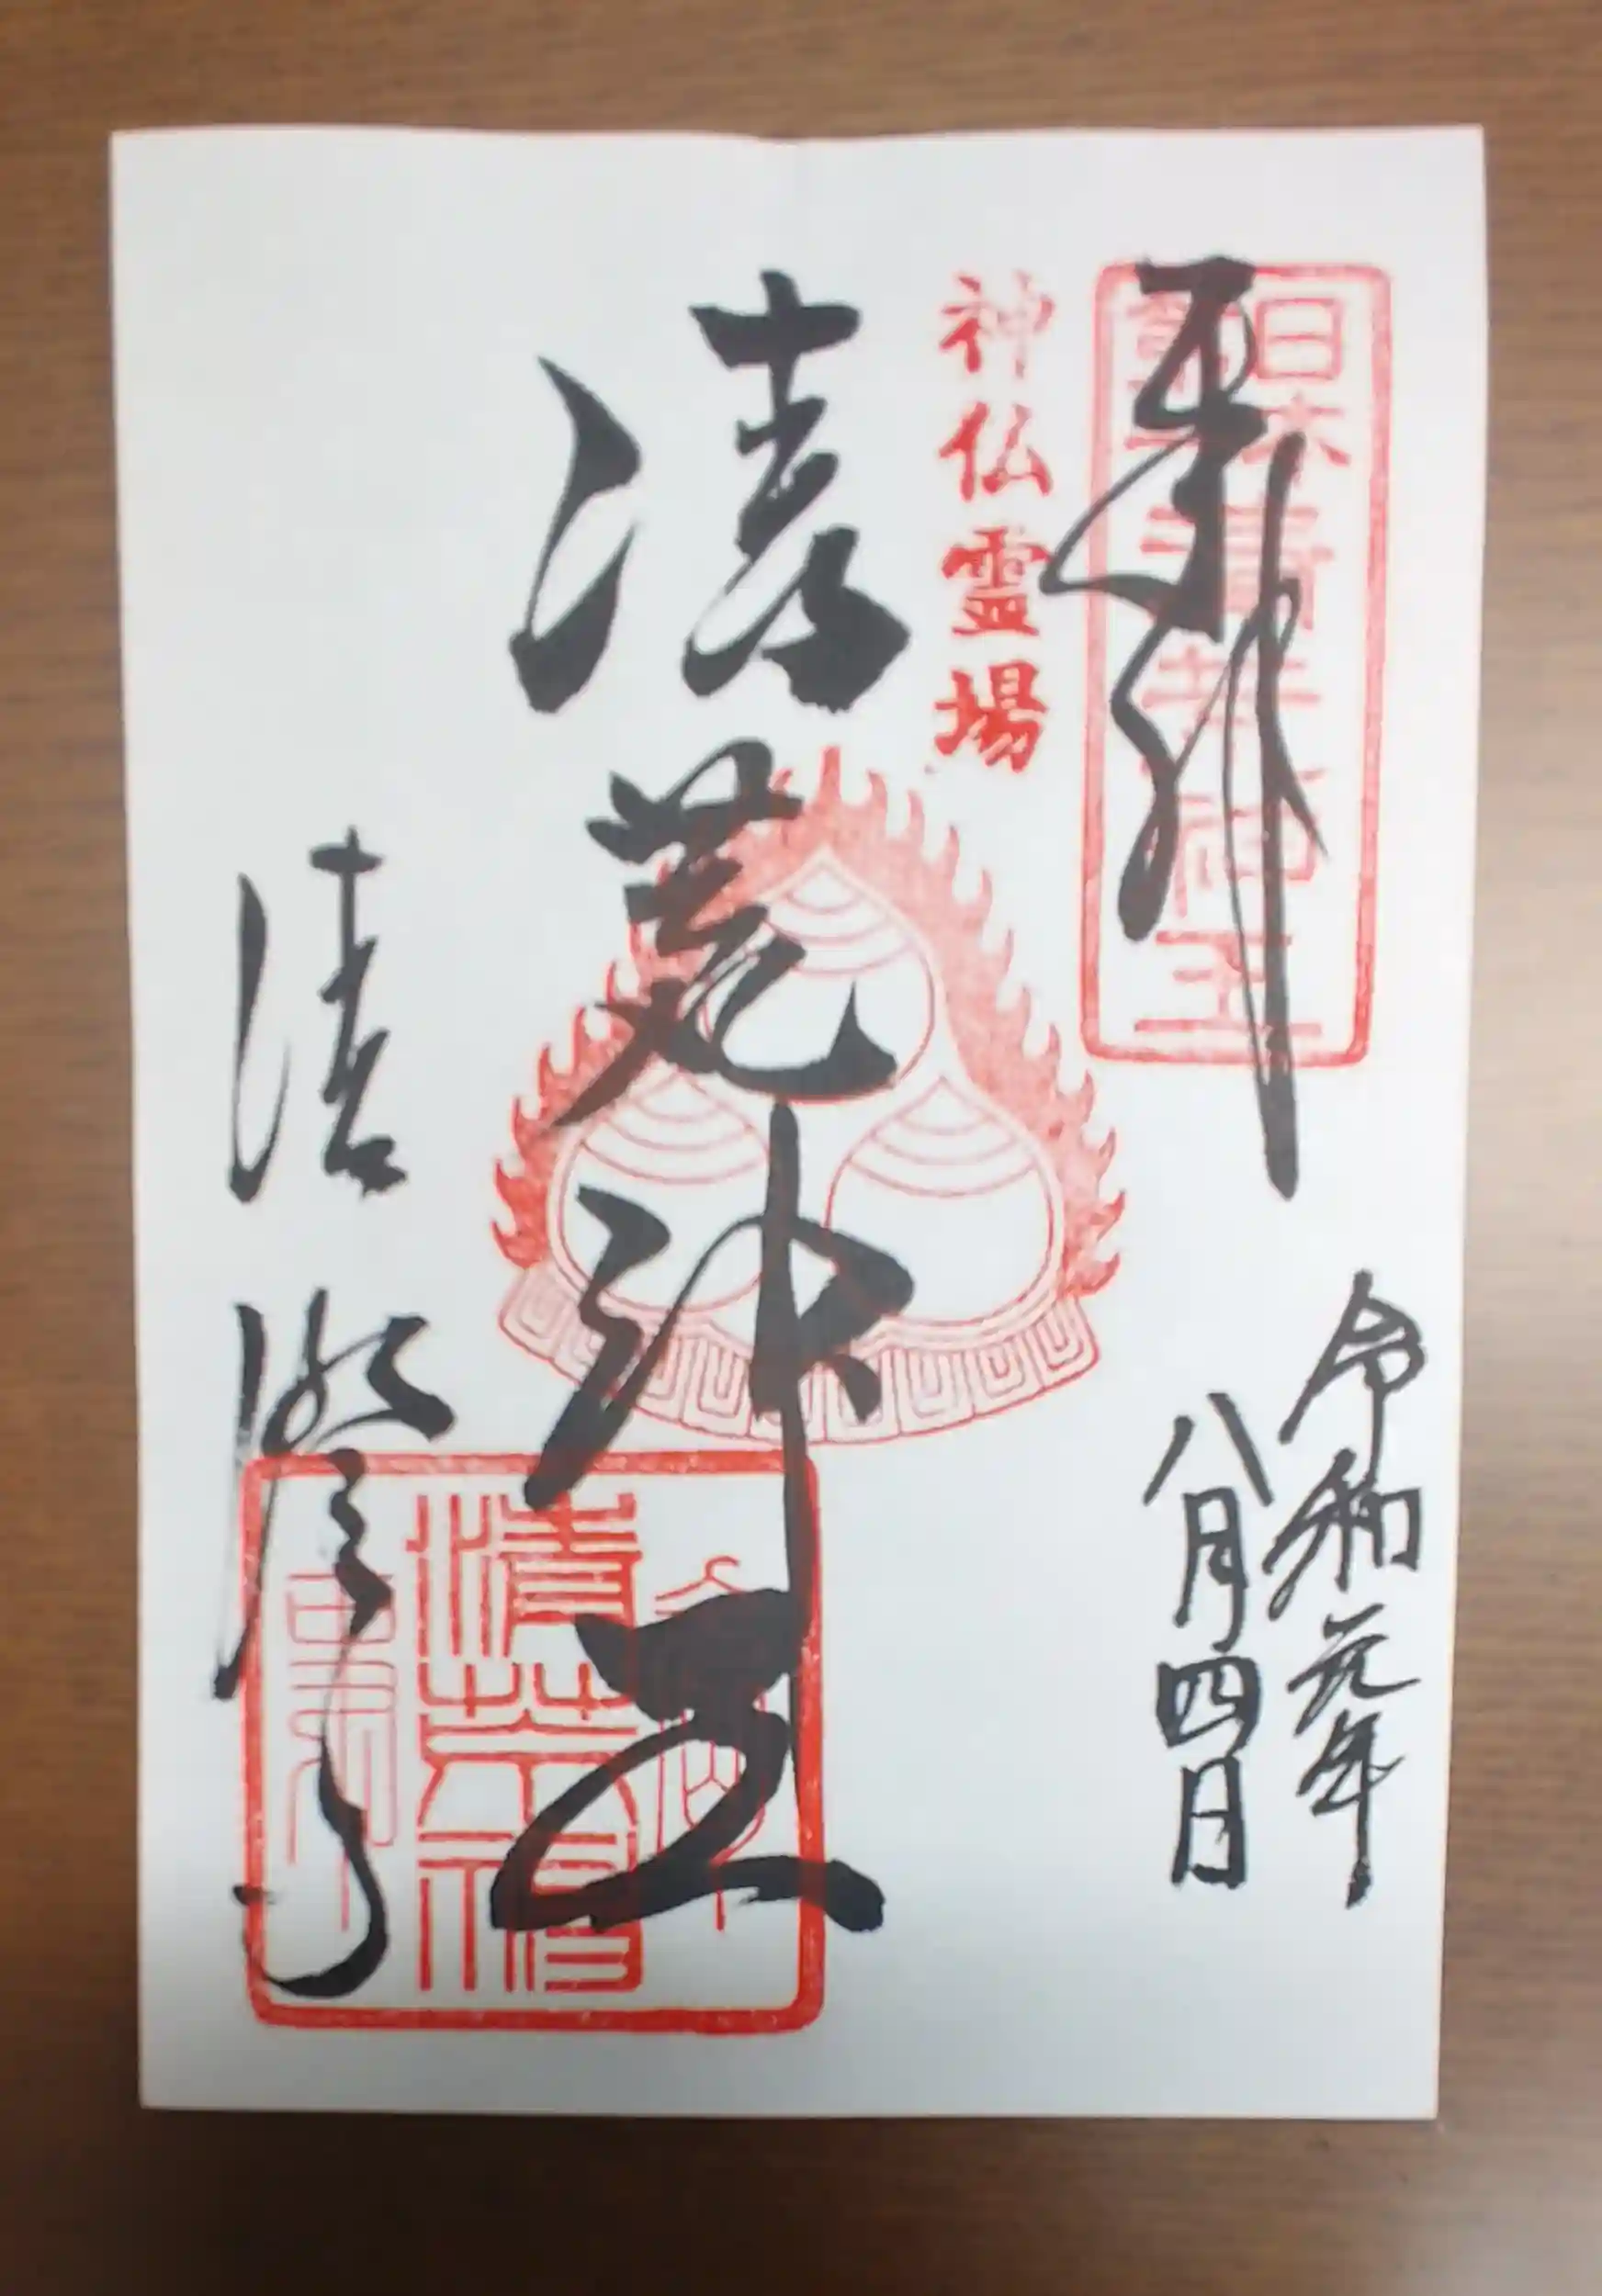 奉拝
日本
第一
清荒神王
令和元年
八月四日
神仏霊場
清荒神王
清荒神
清澄寺